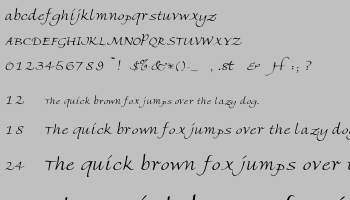 abcdefghijklmnopqrstuvwxyz
ABCDEFGHIJKLMNOPQRSTUVWXYZ
0123456789 ~! $%&*()-_ , .st & ff :; ?
12 The quick brown fox jumps over the lazy dog.
18 The quick brown fox jumps over the lazy dog
24 The quick brown fox jumps over t